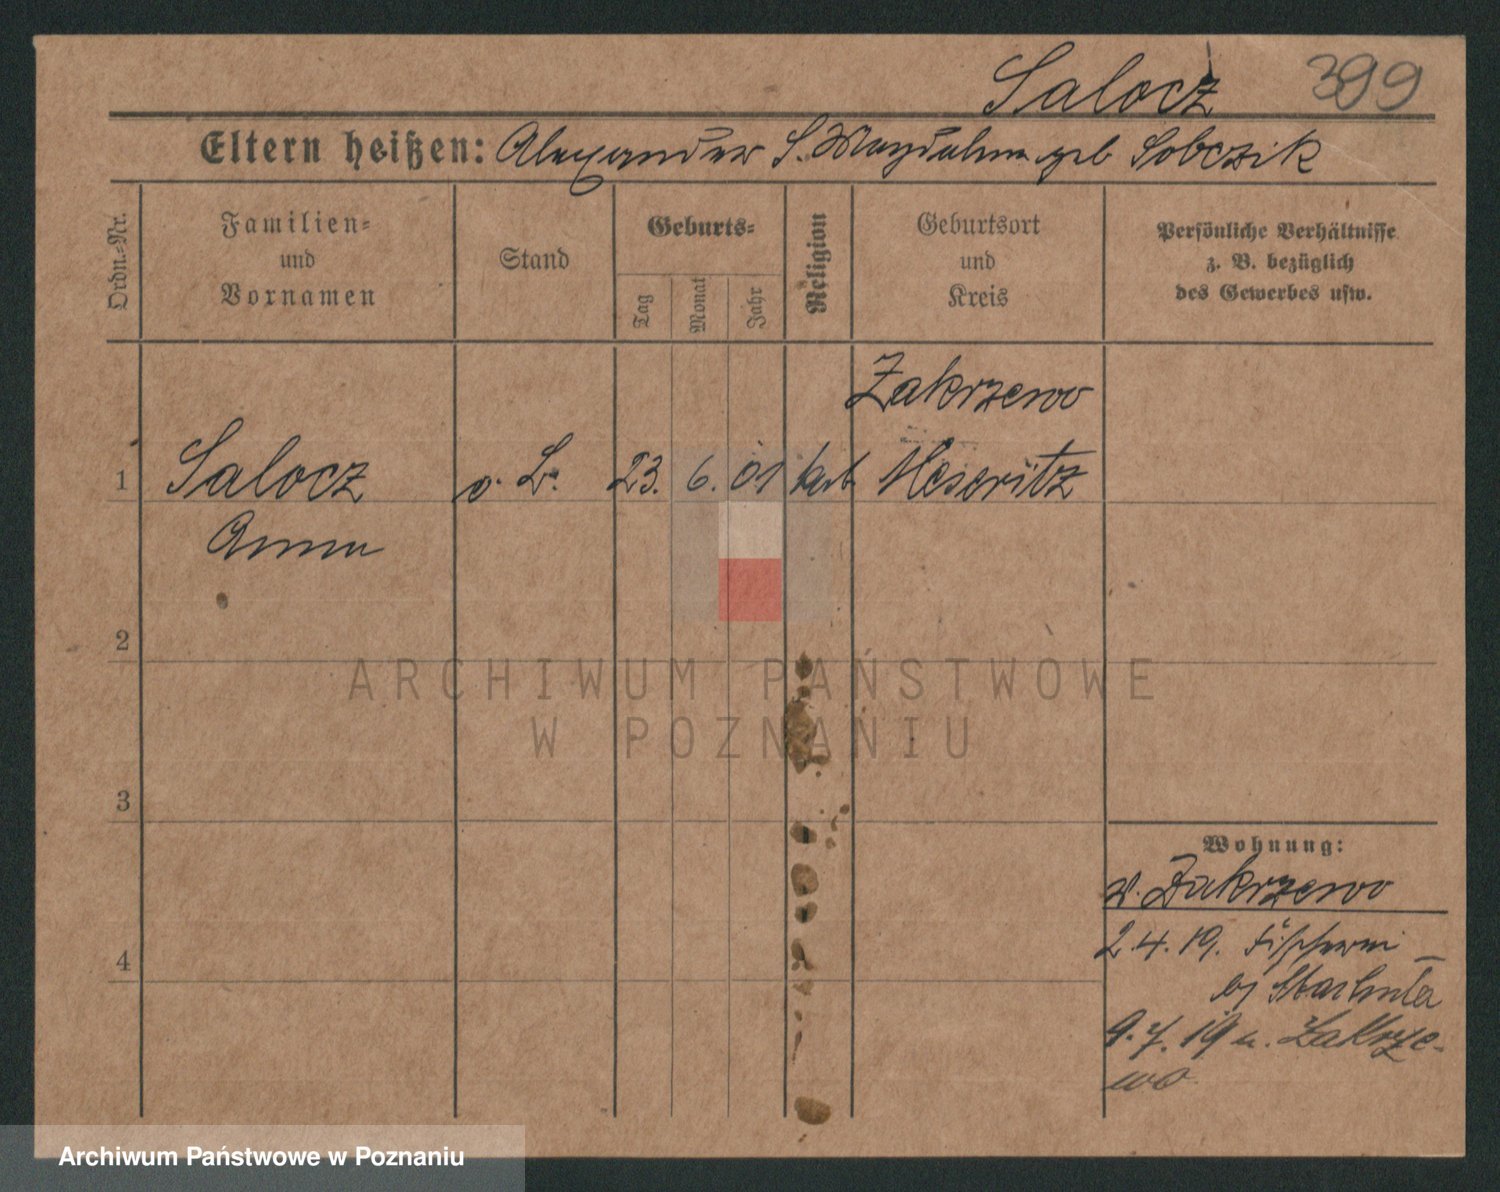 Salocz 399
Eltern heißen: Alexander S. Magdalena geb Sobczik
Ordn.-Nr.
Familien-
und
Vornamen
Stand
Geburts-
Tag
Monat
Jahr
Religion
Geburtsort
und
Kreis
Persönliche Verhältnisse
z. B. bezüglich
des Gewerbes usw.
Zakrzewo
1 Salocz o. L. 23. 6. 01 kath Meseritz
Anna
2
ARCHIWUM PAŃSTWOWE
W POZNANIU
3
Wohnung:
v. Zakrzewo
4
2.4.19. Fischerei
by
9.7.19 n. Zakrze-
wo
Archiwum Państwowe w Poznaniu